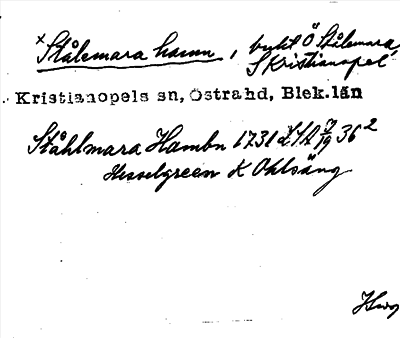 × Stålemara hamn, bukt Ö Stålemara,
S Kristianopel
Kristianopels sn, Östra hd, Blek. län
Ståhlmara Hambn 1731 LSA 36²
Hesselgreen K Ohlsäng